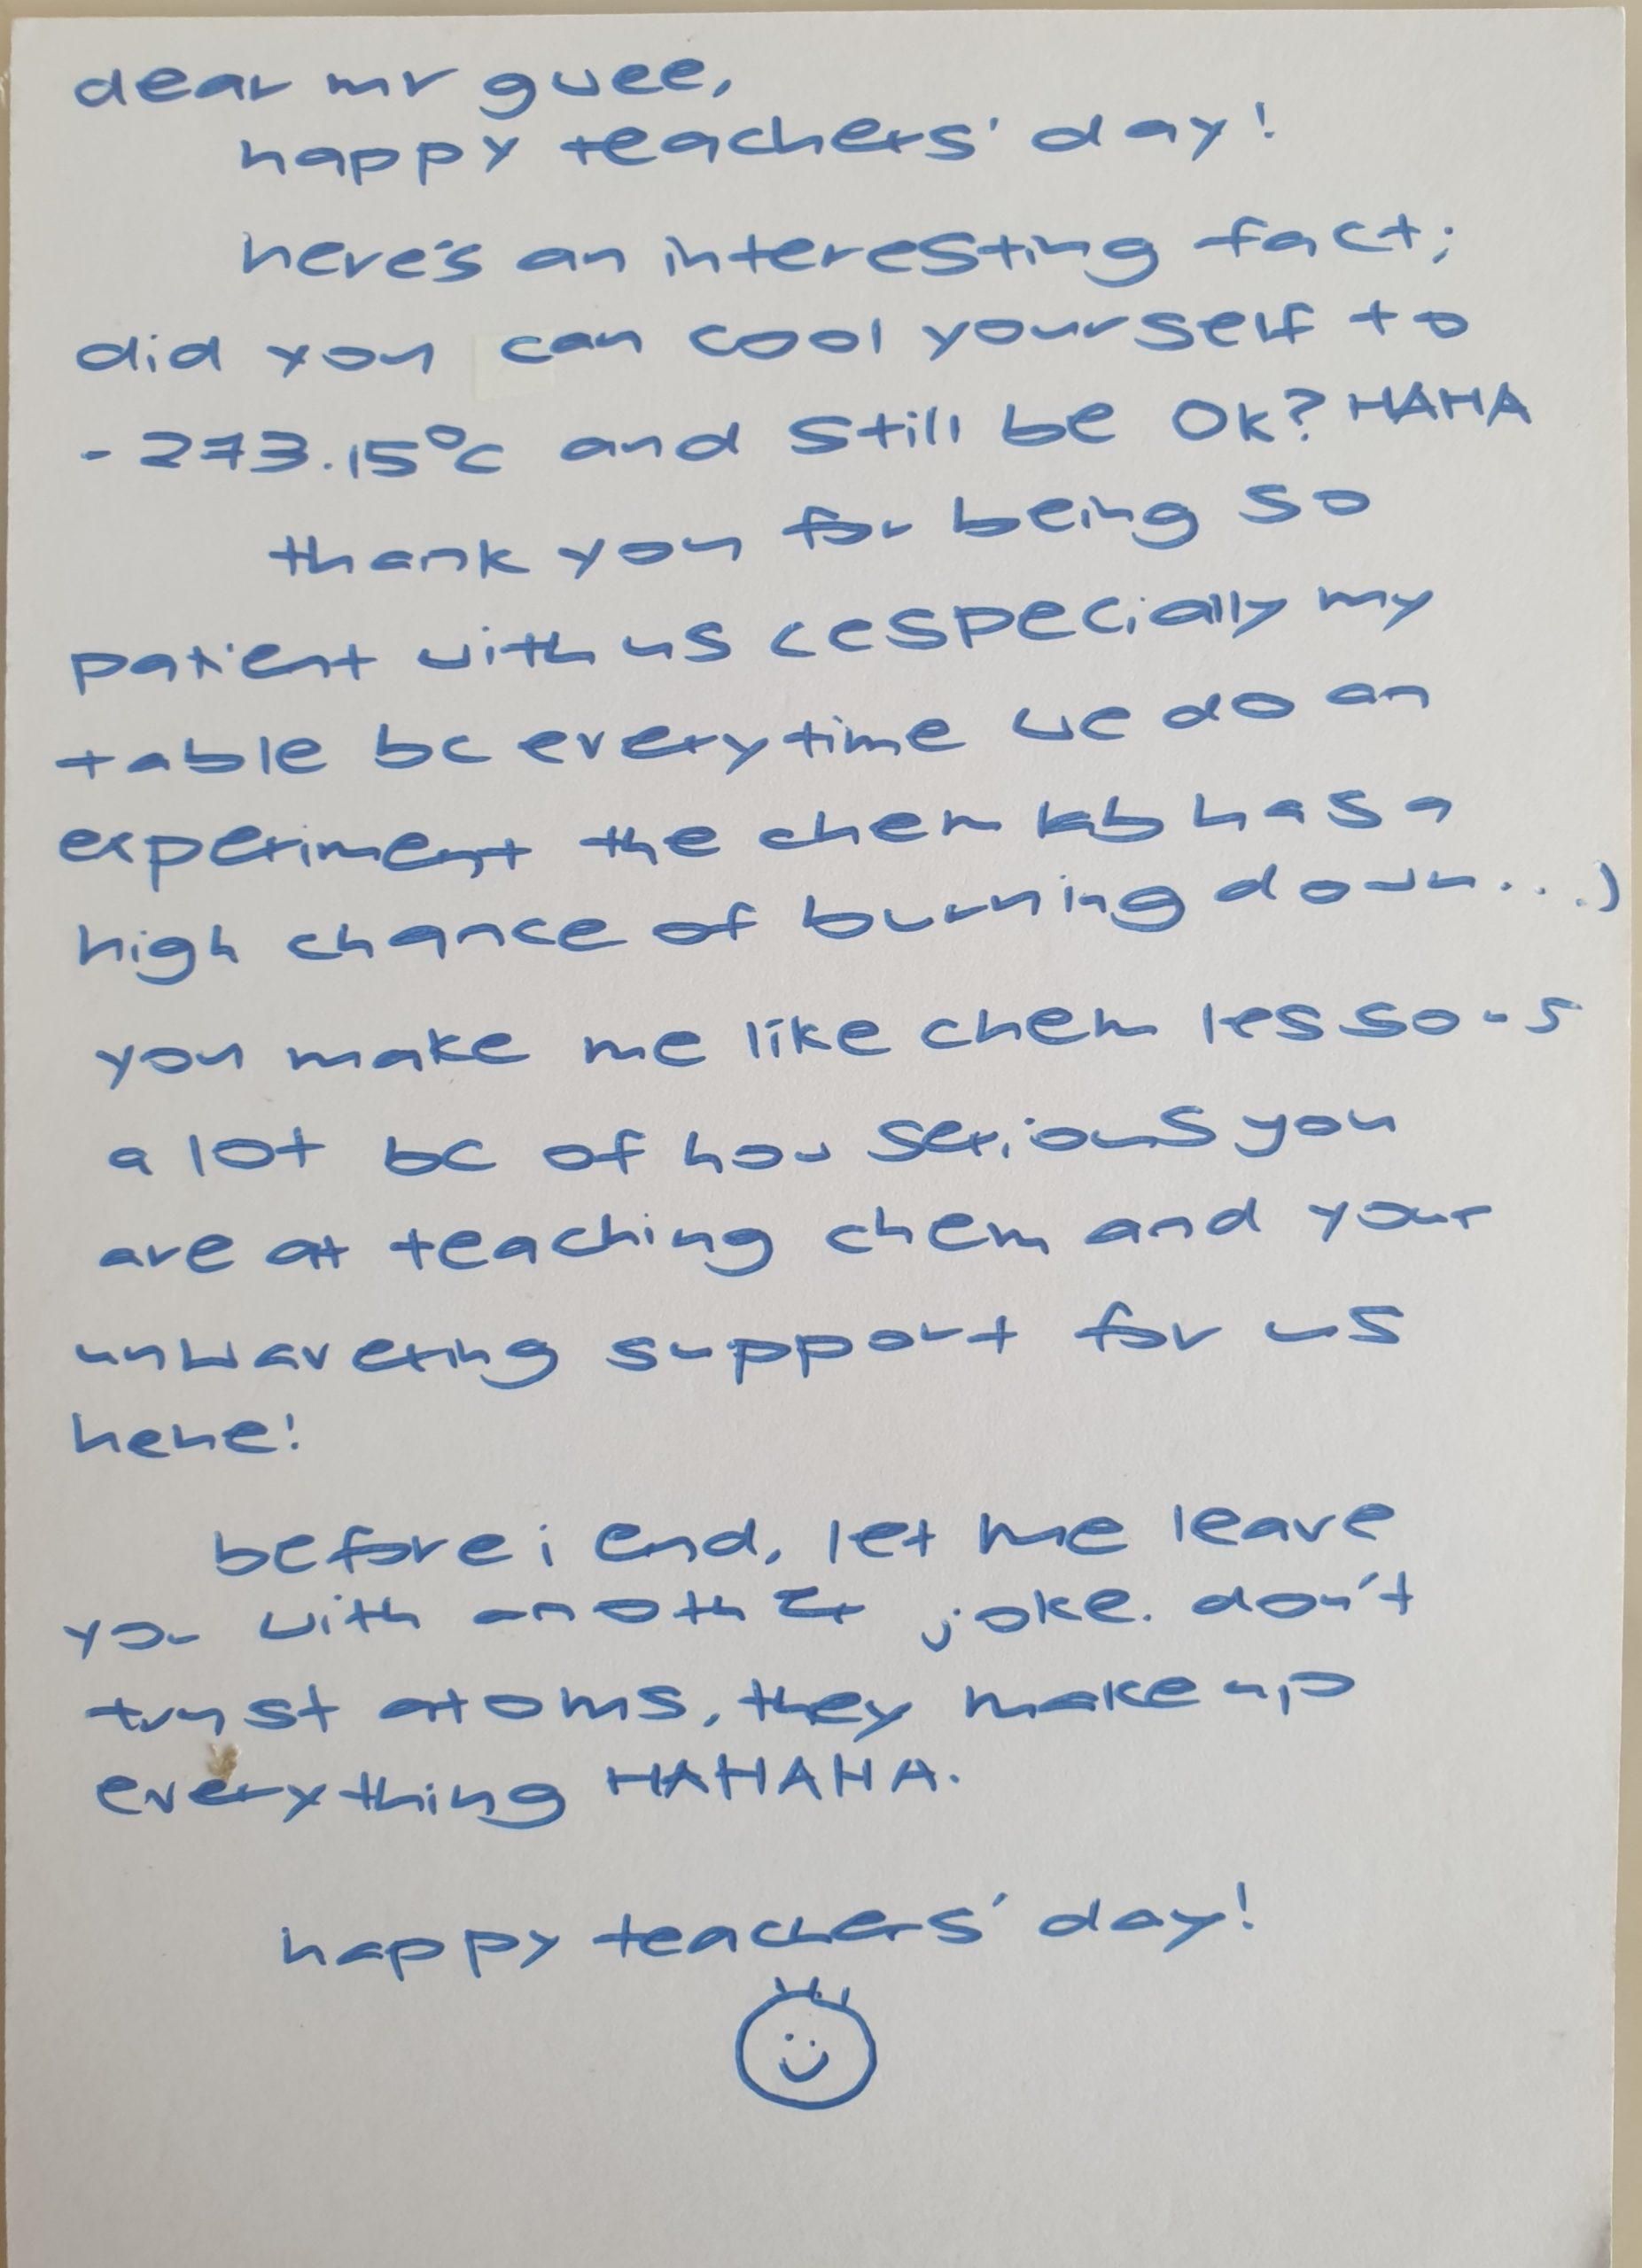 dear mr guee,
happy teachers' day!
here's an interesting fact;
did you can cool yourself to
-273.15°C and still be OK? HAHA
thank you for being so
patient with us (especially my
table bc everytime we do an
experiment the chem lab has a
high chance of burning down...)
you make me like chem lessons
a lot bc of how serious you
are at teaching chem and your
unwavering support for us
hehe!
before i end, let me leave
you with another joke. don't
trust atoms, they make up
everything HAHAHA.
happy teachers' day!